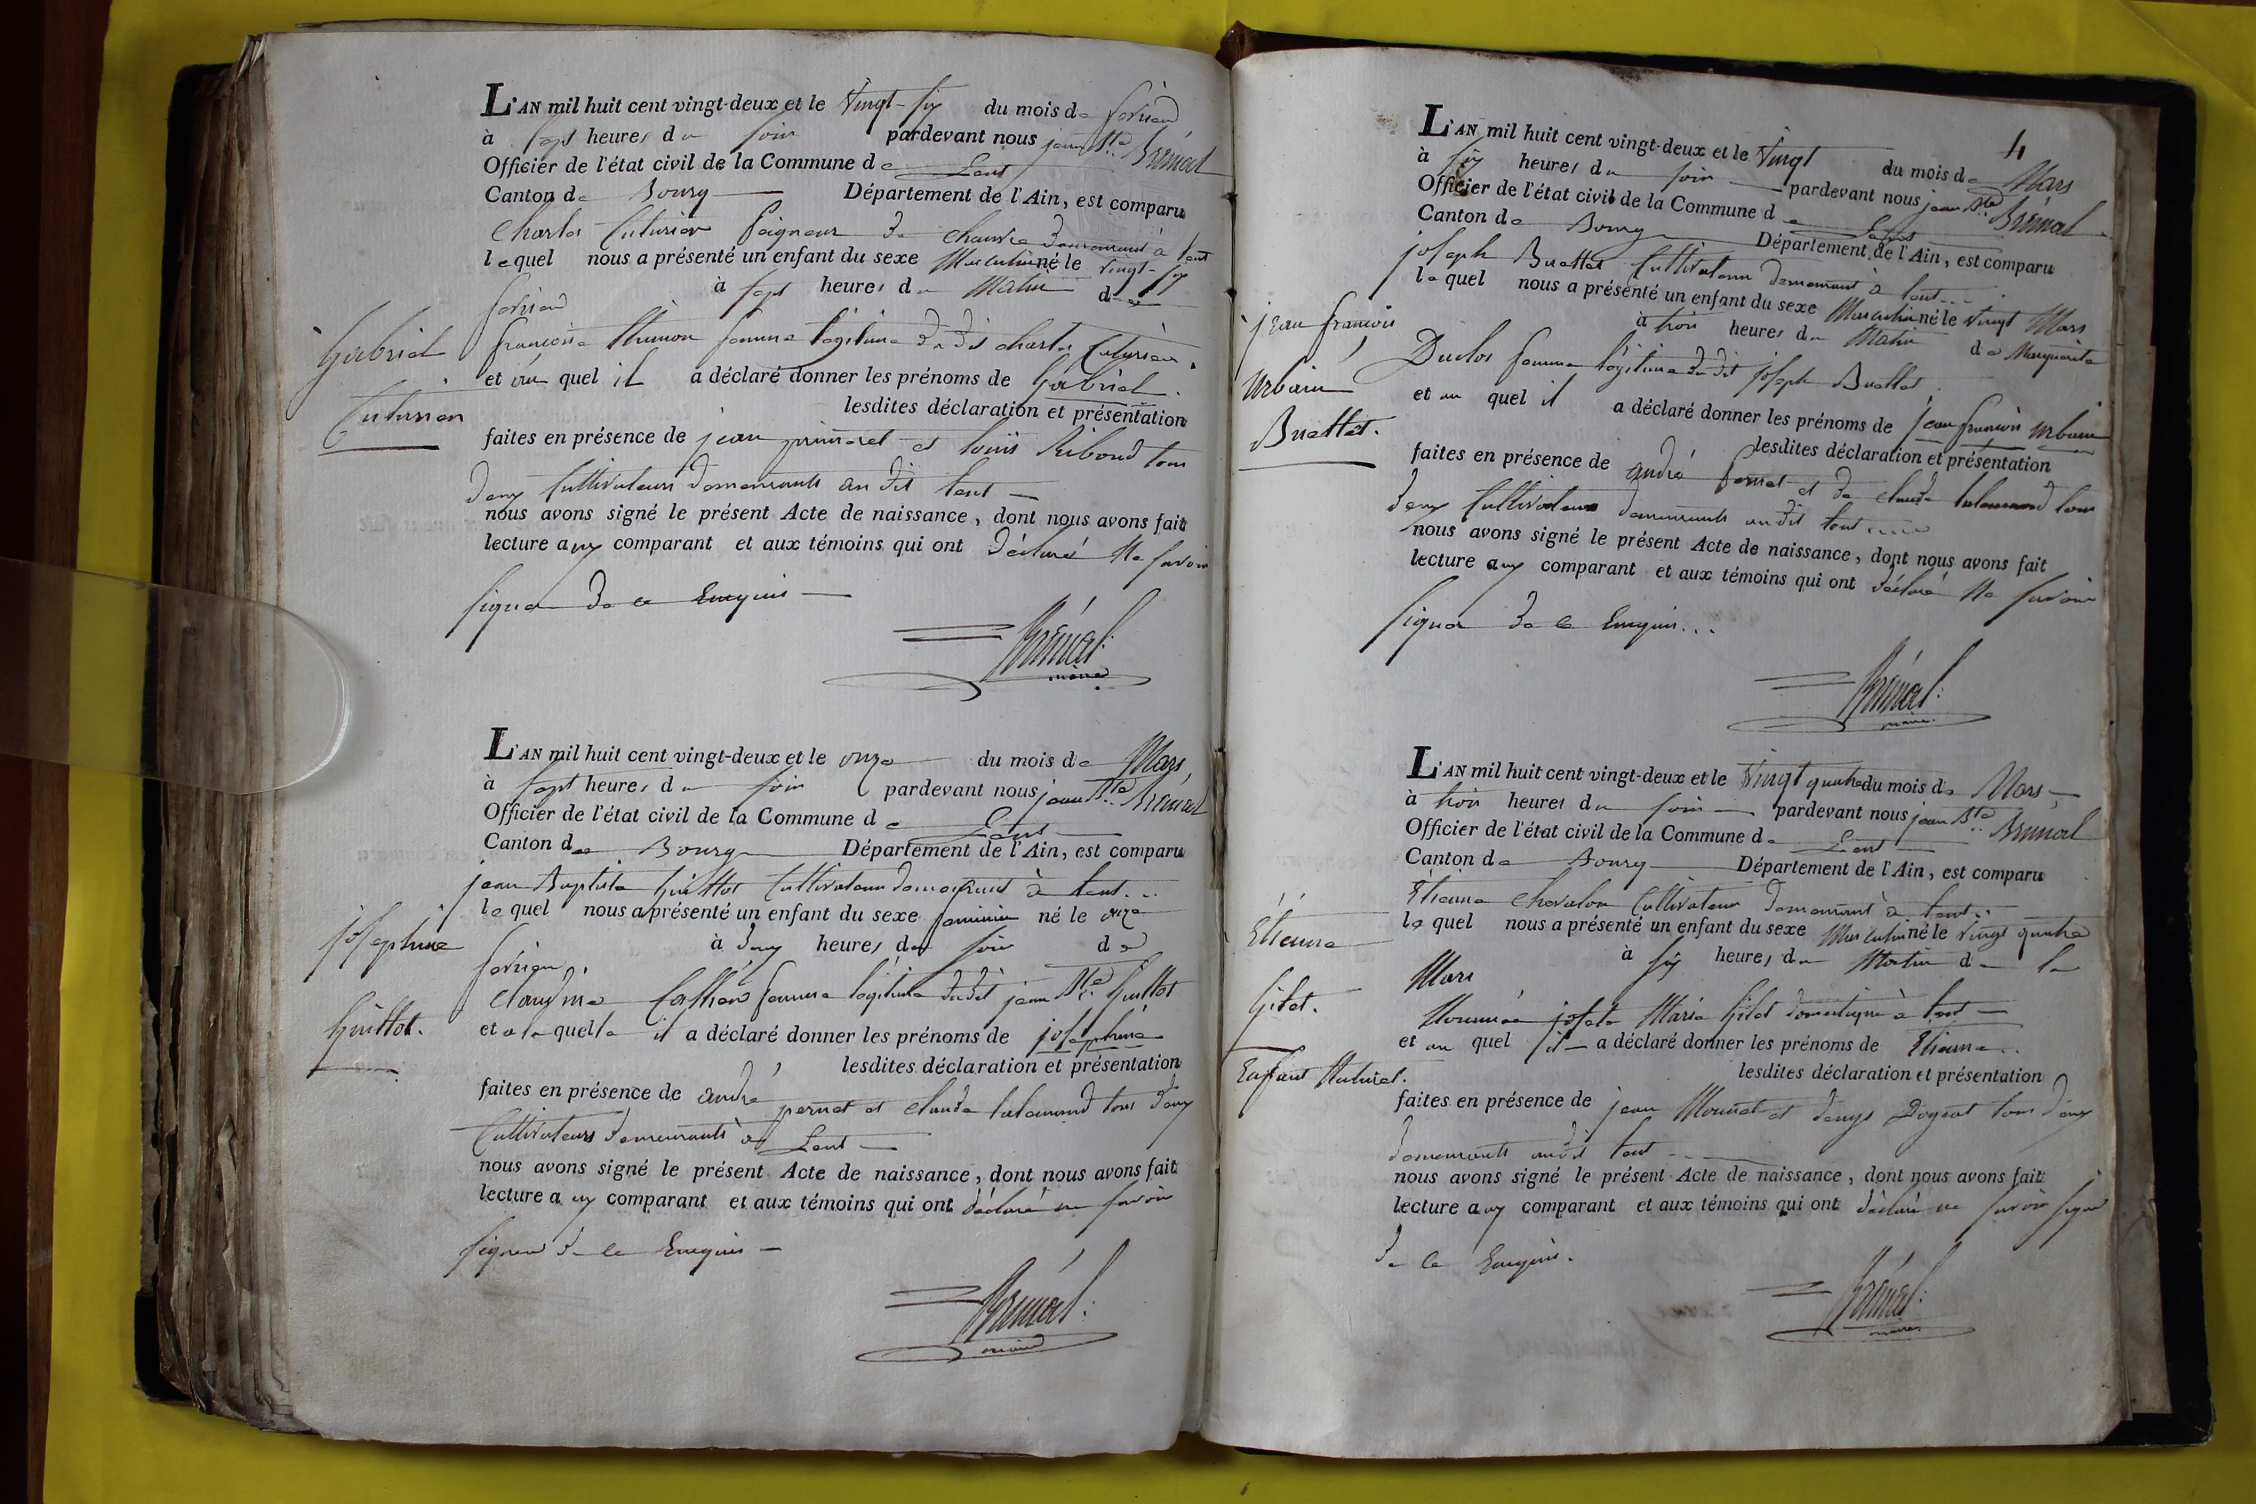 L'AN mil huit cent vingt-deux et le vingt-six du mois de fevrier
à sept heures du soir pardevant nous jean Bte Brémal
Officier de l'état civil de la Commune de Lent
Canton de Bourg Département de l'Ain, est comparu
Charles Cuturier peigneur de chanvre demeurant à Lent
lequel nous a présenté un enfant du sexe Masculin né le vingt-six
fevrier à sept heures du Matin de
françoise femme légitime du dit charles Cuturier
et au quel il a déclaré donner les prénoms de Gabriel.
lesdites déclaration et présentation
faites en présence de jean et louis Riboud tous
deux Cultivateurs demeurants au dit Lent
nous avons signé le présent Acte de naissance, dont nous avons fait
lecture aux comparant et aux témoins qui ont déclaré Ne savoir
signer de ce Enquis
Brémal
maire
Gabriel
Cuturier
L'AN mil huit cent vingt-deux et le onze du mois de Mars
à sept heures du soir pardevant nous jean Bte Brémal
Officier de l'état civil de la Commune de Lent
Canton de Bourg Département de l'Ain, est comparu
jean Baptiste Guillot Cultivateur demeurant à Lent...
lequel nous a présenté un enfant du sexe feminin né le onze
fevrier à deux heures du soir de
claudine femme légitime dudit jean Bte Guillot
et a la quelle il a déclaré donner les prénoms de josephine
lesdites déclaration et présentation
faites en présence de andré pernet et claude lalamand tous deux
Cultivateurs demeurants à Lent
nous avons signé le présent Acte de naissance, dont nous avons fait
lecture aux comparant et aux témoins qui ont déclaré ne savoir
signer de ce Enquis
Brémal
maire
josephine
Guillot.
4
L'AN mil huit cent vingt-deux et le vingt du mois de Mars
à six heures du soir pardevant nous jean Bte Brémal
Officier de l'état civil de la Commune de Lent
Canton de Bourg Département de l'Ain, est comparu
joseph Buellet Cultivateur demeurant à Lent...
lequel nous a présenté un enfant du sexe Masculin né le vingt Mars
à trois heures du Matin de Marguerite
Duclos femme légitime du dit joseph Buellet
et au quel il a déclaré donner les prénoms de jean françois urbain
lesdites déclaration et présentation
faites en présence de andré pernet et de claude lalamand tous
deux Cultivateurs demeurants au dit Lent
nous avons signé le présent Acte de naissance, dont nous avons fait
lecture aux comparant et aux témoins qui ont déclaré Ne savoir
signer de ce Enquis...
Brémal
maire
jean françois
urbain
Buellet.
L'AN mil huit cent vingt-deux et le vingt quatre du mois de Mars
à trois heures du soir pardevant nous jean Bte Brémal
Officier de l'état civil de la Commune de Lent
Canton de Bourg Département de l'Ain, est comparu
Etienne Chevalon Cultivateur demeurant à Lent..
lequel nous a présenté un enfant du sexe Masculin né le vingt quatre
Mars à six heures du Matin de la
Nommée josete Marie Gilet domestique à Lent
et au quel il a déclaré donner les prénoms de Etienne..
lesdites déclaration et présentation
faites en présence de jean Monnet et denys tous deux
demeurants audit Lent
nous avons signé le présent Acte de naissance, dont nous avons fait
lecture aux comparant et aux témoins qui ont déclaré ne savoir signer
de ce Enquis.
Brémal
maire
Etienne
Gilet.
Enfant Naturel.